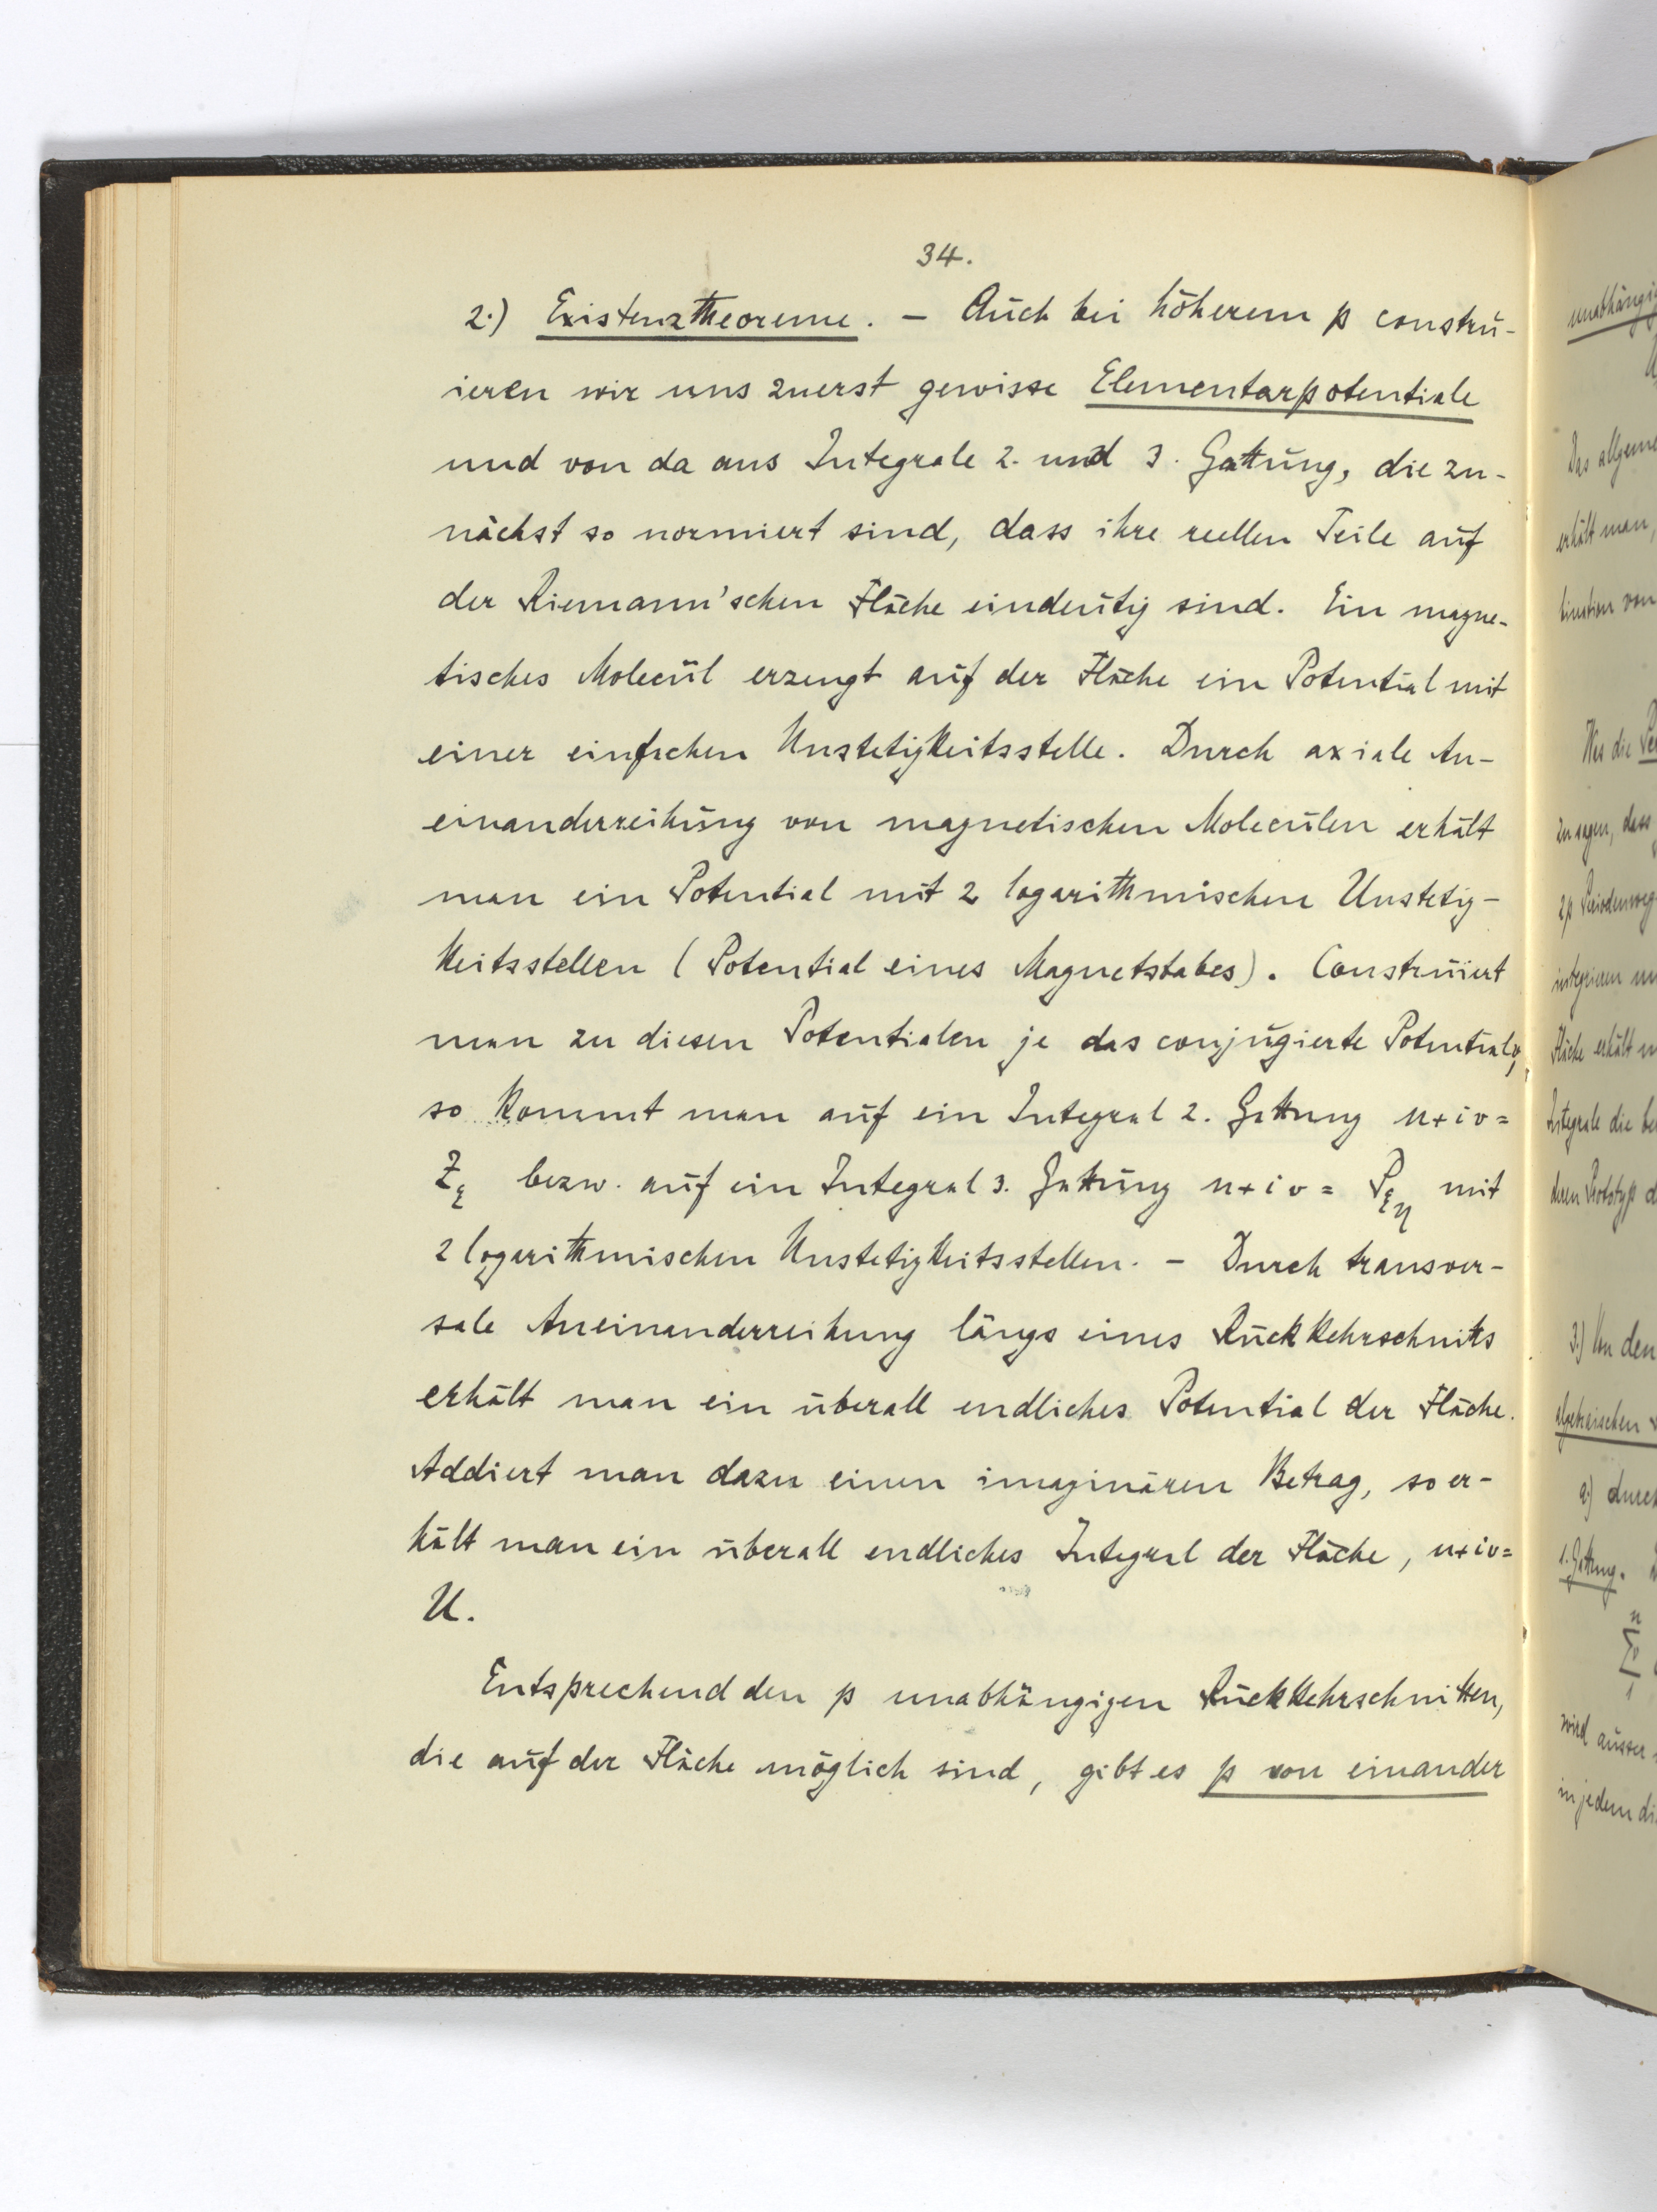 34.
2.) Existenztheoreme. – Auch bei höherem p constru-
ieren wir uns zuerst gewisse Elementarpotentiale
und von da aus Integrale 2. und 3. Gattung, die zu-
nächst so normiert sind, dass ihre reellen Teile auf
der Riemann'schen Fläche eindeutig sind. Ein magne-
tisches Molecül erzeugt auf der Fläche ein Potential mit
einer einfachen Unstetigkeitsstelle. Durch axiale An-
einanderreihung von magnetischen Molecülen erhält
man ein Potential mit 2 logarithmischen Unstetig-
keitsstellen (Potential eines Magnetstabes). Construiert
man zu diesen Potentialen je das conjugierte Potential,
so kommt man auf ein Integral 2. Gattung u+iv=
Z_ξ bezw. auf ein Integral 3. Gattung u+iv= P_ξη mit
2 logarithmischen Unstetigkeitsstellen. – Durch transver-
sale Aneinanderreihung längs eines Rückkehrschnitts
erhält man ein überall endliches Potential der Fläche.
Addiert man dazu einen imaginären Betrag, so er-
hält man ein überall endliches Integral der Fläche, u+iv=
U.
Entsprechend den p unabhängigen Rückkehrschnitten,
die auf der Fläche möglich sind, gibt es p von einander
unabhängig
Das allgeme
erhält man,
bination von
zu sagen, dass
integrieren
Fläche erhält
Integrale die be
deren Prototyp d
3.) Von den
algebraischen
a) durch
1. Gattung.
wird ausser
in jedem di